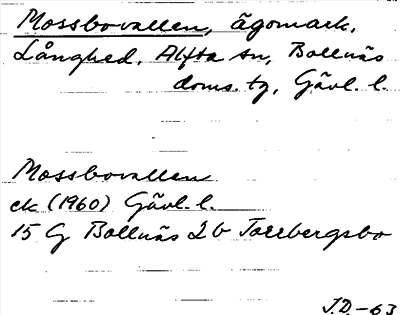 Mossbovallen, ägomark.
Långhed, Alfta sn, Bollnäs
doms. tg, Gävl. l.
Mossbovallen
ek (1960) Gävl. l.
15 G Bollnäs 2b Torrbergsbo
J.D.-63